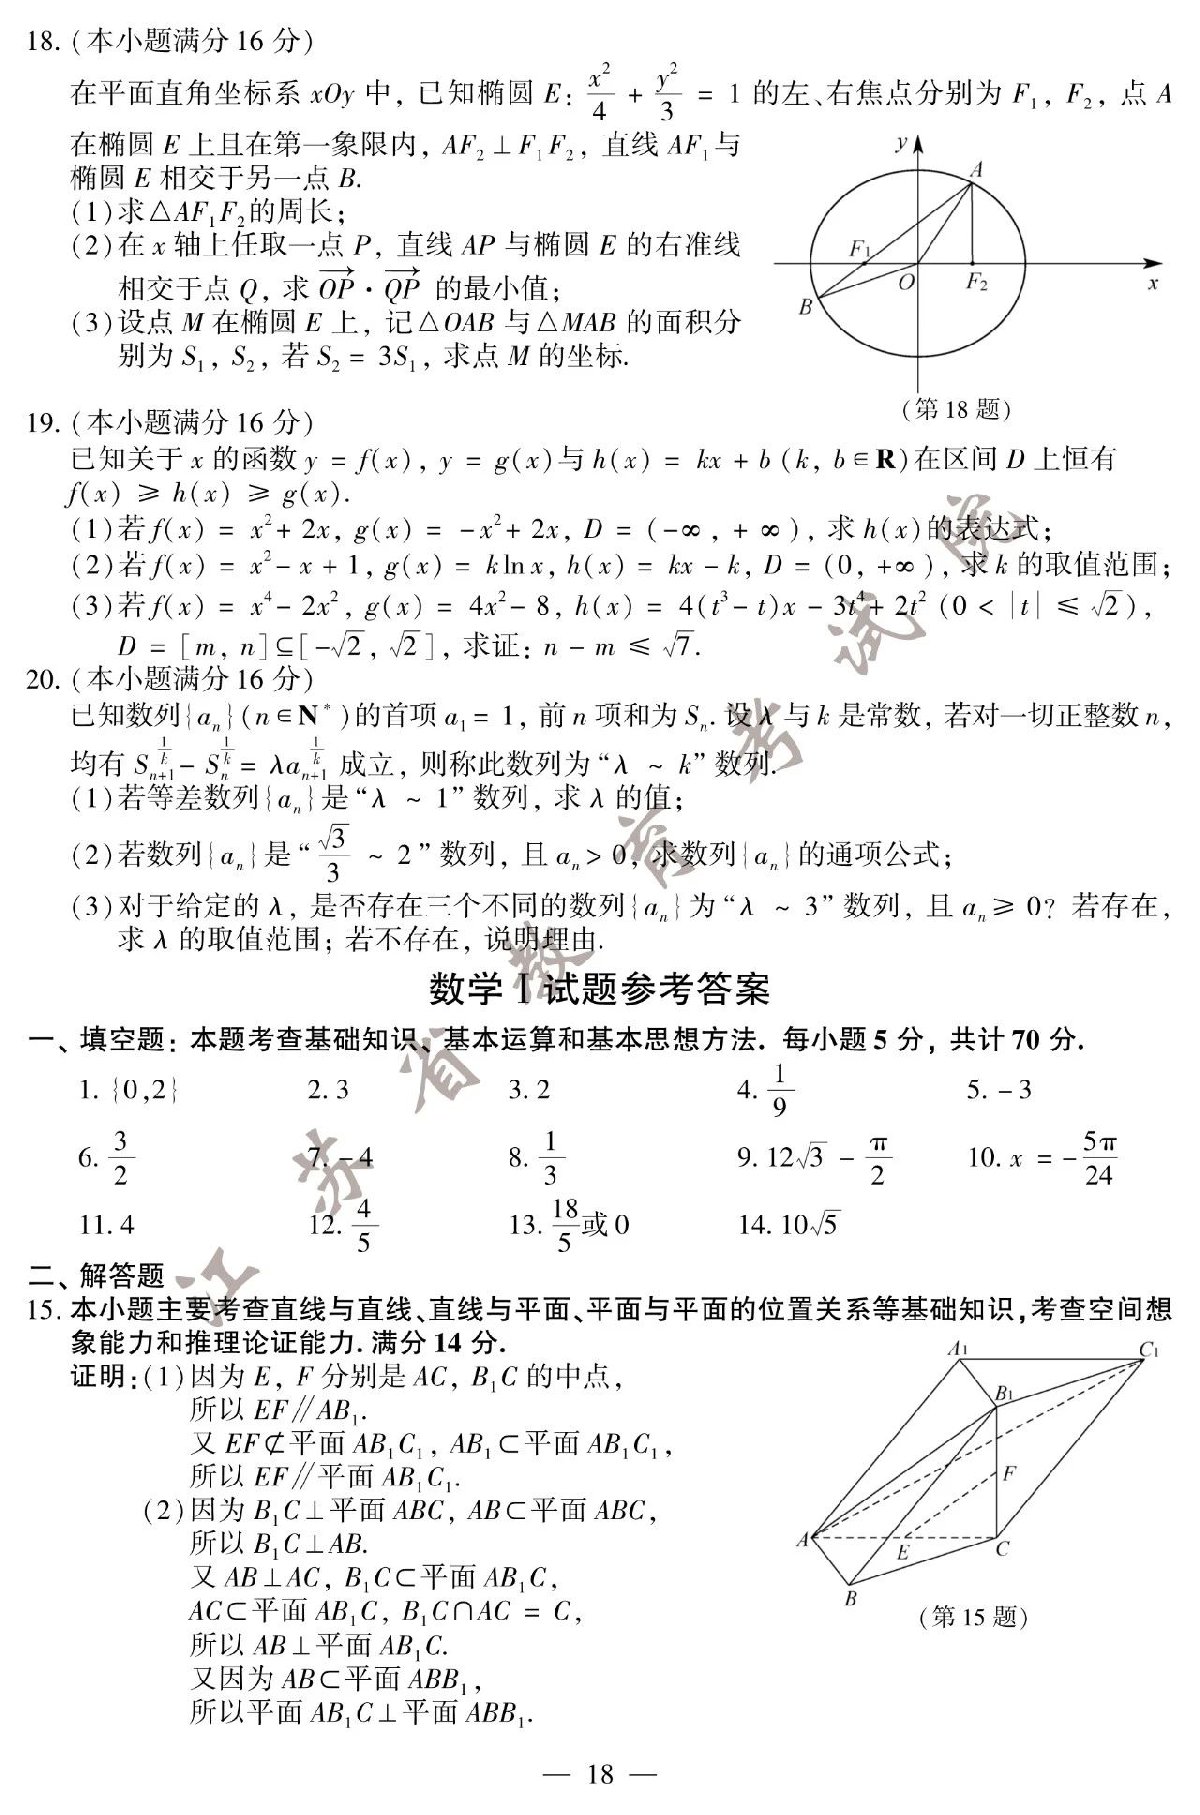 18. (本小题满分16分)
在平面直角坐标系 xOy 中, 已知椭圆 E: x²/4 + y²/3 = 1 的左、右焦点分别为 F₁, F₂, 点 A
在椭圆 E 上且在第一象限内, AF₂⊥F₁F₂, 直线 AF₁与
椭圆 E 相交于另一点 B.
(1)求△AF₁F₂的周长;
(2)在 x 轴上任取一点 P, 直线 AP 与椭圆 E 的右准线
相交于点 Q, 求 \overrightarrow{OP}·\overrightarrow{QP} 的最小值;
(3)设点 M 在椭圆 E 上, 记△OAB 与△MAB 的面积分
别为 S₁, S₂, 若 S₂ = 3S₁, 求点 M 的坐标.
y
A
F₁
O
F₂
x
B
(第18题)
19. (本小题满分16分)
已知关于 x 的函数 y = f(x), y = g(x)与 h(x) = kx + b (k, b∈R)在区间 D 上恒有
f(x) ≥ h(x) ≥ g(x).
(1)若 f(x) = x²+ 2x, g(x) = -x²+ 2x, D = (-∞, +∞), 求 h(x)的表达式;
(2)若 f(x) = x²- x + 1, g(x) = k ln x, h(x) = kx - k, D = (0, +∞), 求 k 的取值范围;
(3)若 f(x) = x⁴- 2x², g(x) = 4x²- 8, h(x) = 4(t³- t)x - 3t⁴+ 2t² (0 < |t| ≤ √2),
D = [m, n]⊆[-√2, √2], 求证: n - m ≤ √7.
20. (本小题满分16分)
已知数列{aₙ}(n∈N*)的首项 a₁= 1, 前 n 项和为 Sₙ. 设 λ 与 k 是常数, 若对一切正整数 n,
均有 S_{n+1}^{1/k} - S_n^{1/k} = λa_{n+1}^{1/k} 成立, 则称此数列为“λ ~ k”数列.
(1)若等差数列{aₙ}是“λ ~ 1”数列, 求 λ 的值;
(2)若数列{aₙ}是“√3/3 ~ 2”数列, 且 aₙ> 0, 求数列{aₙ}的通项公式;
(3)对于给定的 λ, 是否存在三个不同的数列{aₙ}为“λ ~ 3”数列, 且 aₙ≥ 0? 若存在,
求 λ 的取值范围; 若不存在, 说明理由.
数学Ⅰ试题参考答案
一、填空题: 本题考查基础知识、基本运算和基本思想方法. 每小题5分, 共计70分.
1. {0,2} 2. 3 3. 2 4. 1/9 5. -3
6. 3/2 7. -4 8. 1/3 9. 12√3 - π/2 10. x = -5π/24
11. 4 12. 4/5 13. 18/5或0 14. 10√5
二、解答题
15. 本小题主要考查直线与直线、直线与平面、平面与平面的位置关系等基础知识,考查空间想
象能力和推理论证能力.满分14分.
证明:(1)因为 E, F 分别是 AC, B₁C 的中点,
所以 EF∥AB₁.
又 EF⊄平面 AB₁C₁, AB₁⊂平面 AB₁C₁,
所以 EF∥平面 AB₁C₁.
(2)因为 B₁C⊥平面 ABC, AB⊂平面 ABC,
所以 B₁C⊥AB.
又 AB⊥AC, B₁C⊂平面 AB₁C,
AC⊂平面 AB₁C, B₁C∩AC = C,
所以 AB⊥平面 AB₁C.
又因为 AB⊂平面 ABB₁,
所以平面 AB₁C⊥平面 ABB₁.
A₁
C₁
B₁
F
A
E
C
B
(第15题)
江苏省教育考试院
— 18 —